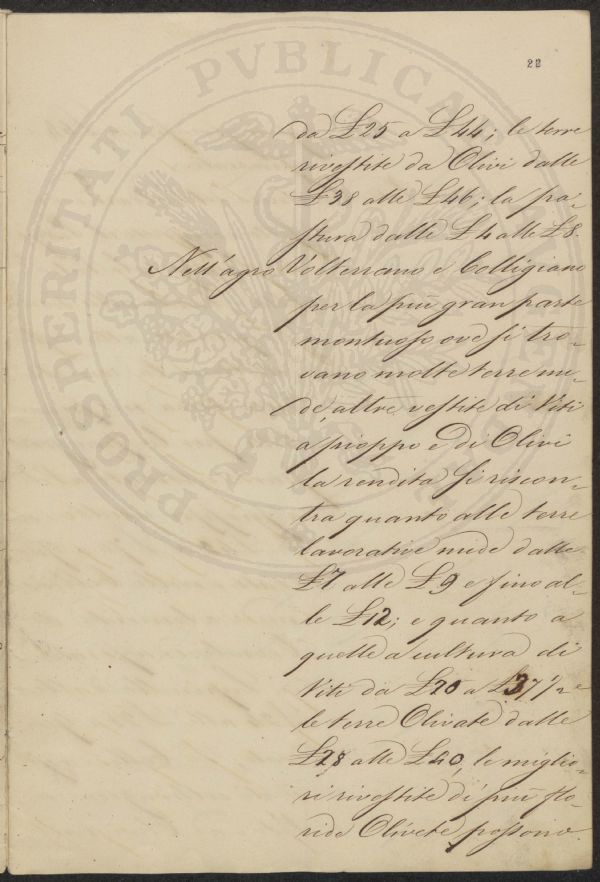 22
da £25 a £44; le terre
rivestite da Olivi dalle
£38 alle £46; la pa-
stura dalle £4 alle £8.
Nell'agro Volterrano e Colligiano
per la più gran parte
montuoso ove si tro-
vano molte terre nu-
de, altre vestite di Viti
a pioppo e di Olivi
la rendita si riscon-
tra quanto alle terre
lavorative nude dalle
£7 alle £9 e fino al-
le £12; e quanto a
quelle a cultura di
Viti da £20 a £37 1/2 e
le terre Olivate dalle
£28 alle £40, le miglio-
ri rivestite di più flo-
ride Olivete possono
PROSPERITATI PVBLICAE